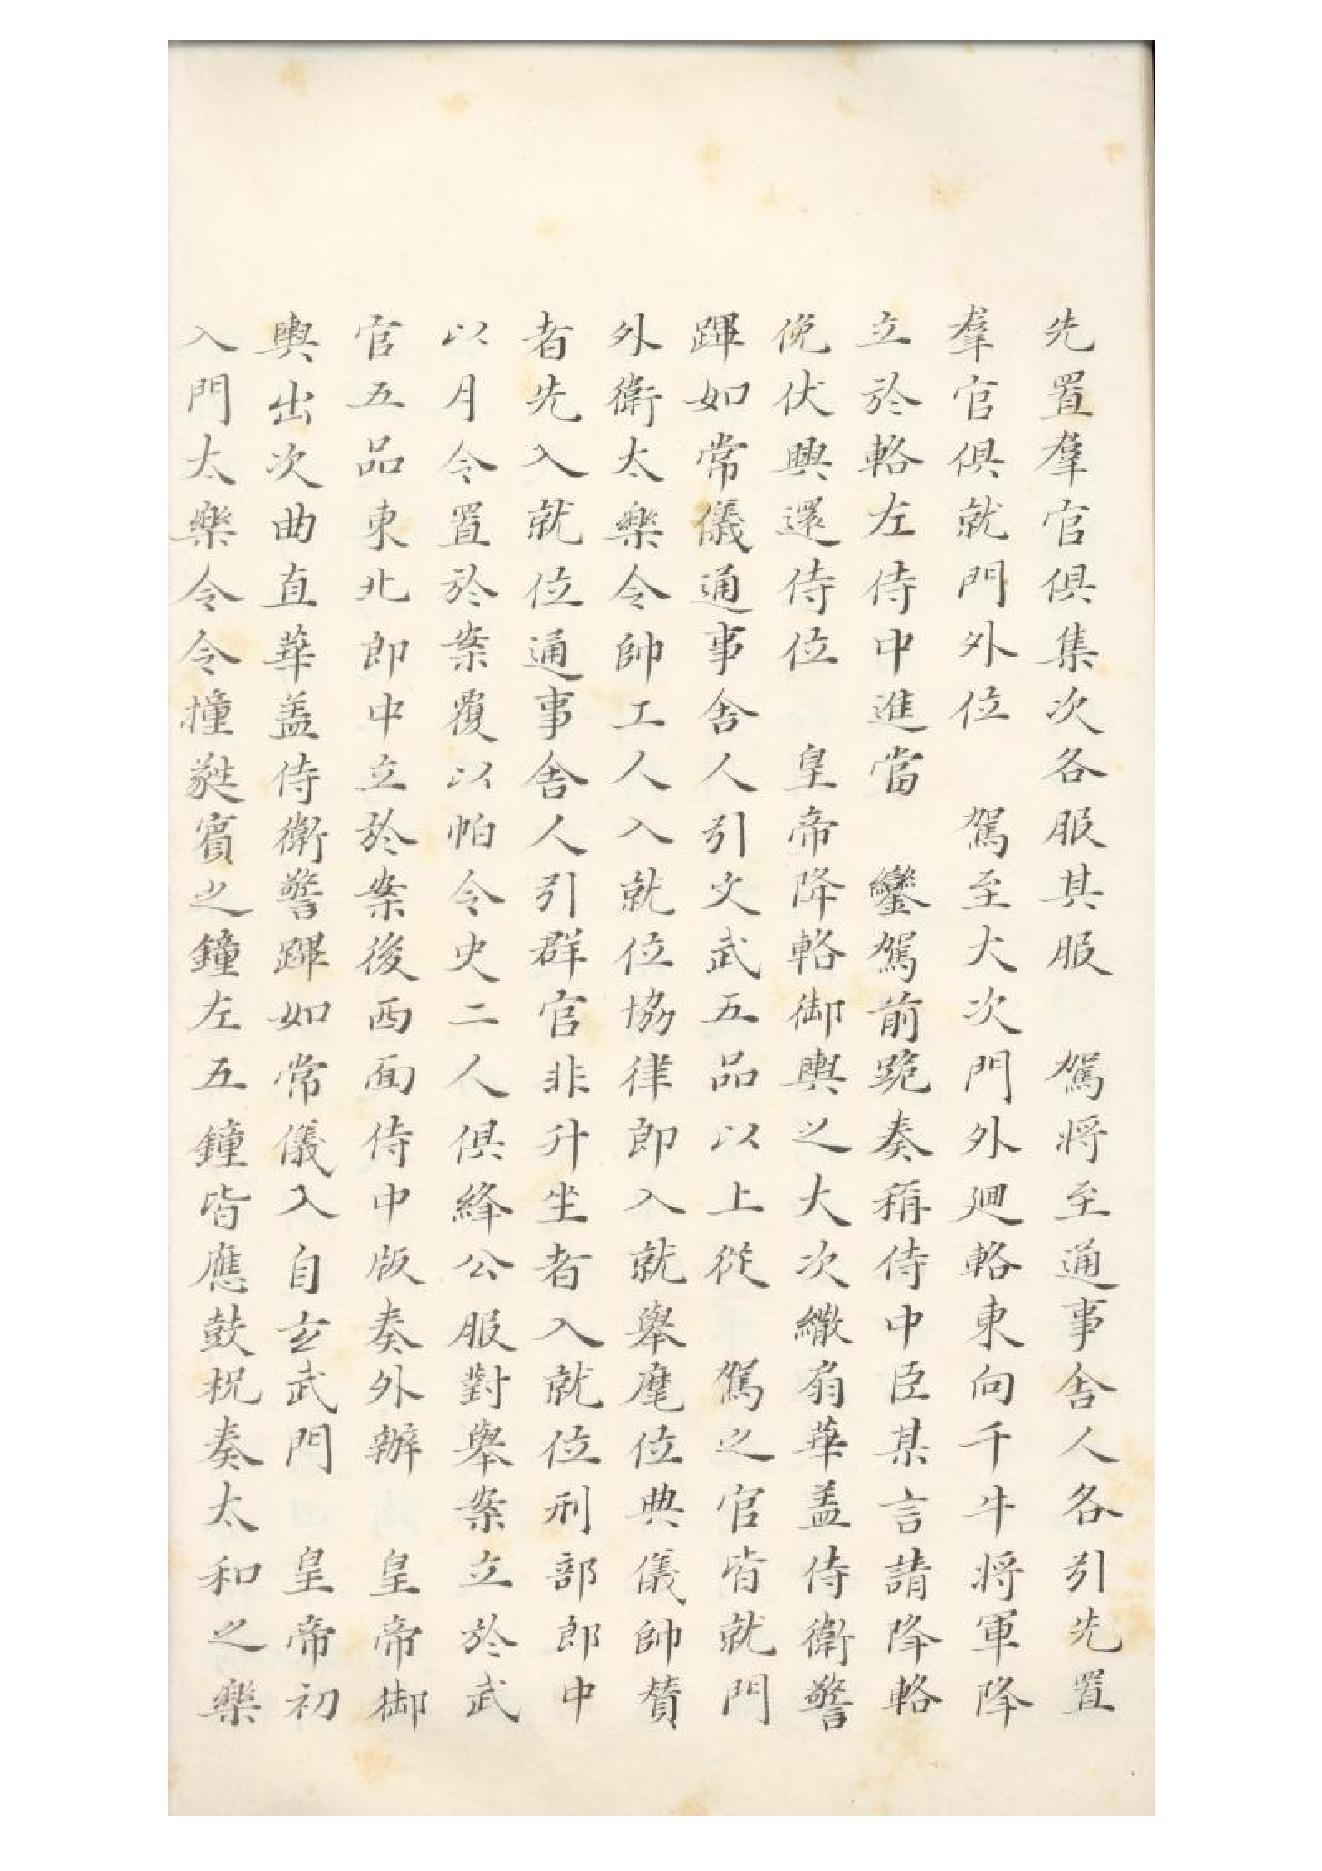 先置羣官俱集次各服其服　駕将至通事舍人各引先置
羣官俱就門外位　駕至大次門外廻輅東向千牛将軍降
立於輅左侍中進當　鑾駕前跪奏稱侍中臣某言請降輅
俛伏興還侍位　皇帝降輅御輿之大次繖扇華盖侍衛警
蹕如常儀通事舍人引文武五品以上從　駕之官皆就門
外衛太樂令帥工人入就位協律郎入就舉麾位典儀帥賛
者先入就位通事舍人引群官非升坐者入就位刑部郎中
以月令置於案覆以帕令史二人俱絳公服對舉案立於武
官五品東北郎中立於案後西面侍中版奏外辦　皇帝御
輿出次曲直華盖侍衛警蹕如常儀入自玄武門　皇帝初
入門太樂令令撞蕤賓之鐘左五鐘皆應鼓柷奏太和之樂